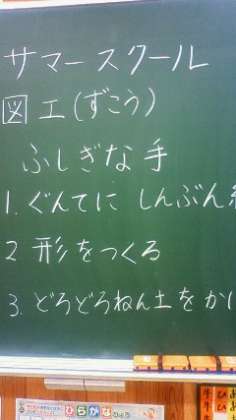 サマースクール
図工(ずこう)
ふしぎな手
1. ぐんてに しんぶん
2 形をつくる
3. どろどろねん土をか
ひらがな